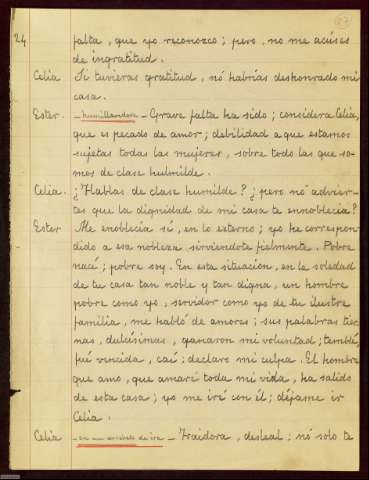 24 falta, que yo reconozco; pero, no me acúses
de ingratitud.
Celia Si tuvieras gratitud, nó habrías deshonrado mi
casa.
Ester. -humillandose- Grave falta ha sido; considera Celia,
que es pecado de amor; debilidad a que estamos
sujetas todas las mujeres, sobre todo las que so-
mos de clase humilde.
Celia. ¿Hablas de clase humilde? ¿pero nó advier-
tes que la dignidad de mi casa te ennoblecía?
Ester Me enoblecía si, en lo esterno; yo he correspon-
dido a esa nobleza sirviendote fielmente. Pobre
nací; pobre soy. En esta situación, en la soledad
de tu casa tan noble y tan digna, un hombre
pobre como yo, servidor como yo de tu ilustre
familia, me habló de amores; sus palabras tier-
nas, dulcísimas, ganaron mi voluntad; temblé,
fuí vencida, caí; declaro mi culpa. El hombre
que amo, que amaré toda mi vida, ha salido
de esta casa; yo me iré con él; déjame ir
Celia.
Celia -en un arrebato de ira- Traidora, desleal; nó solo te